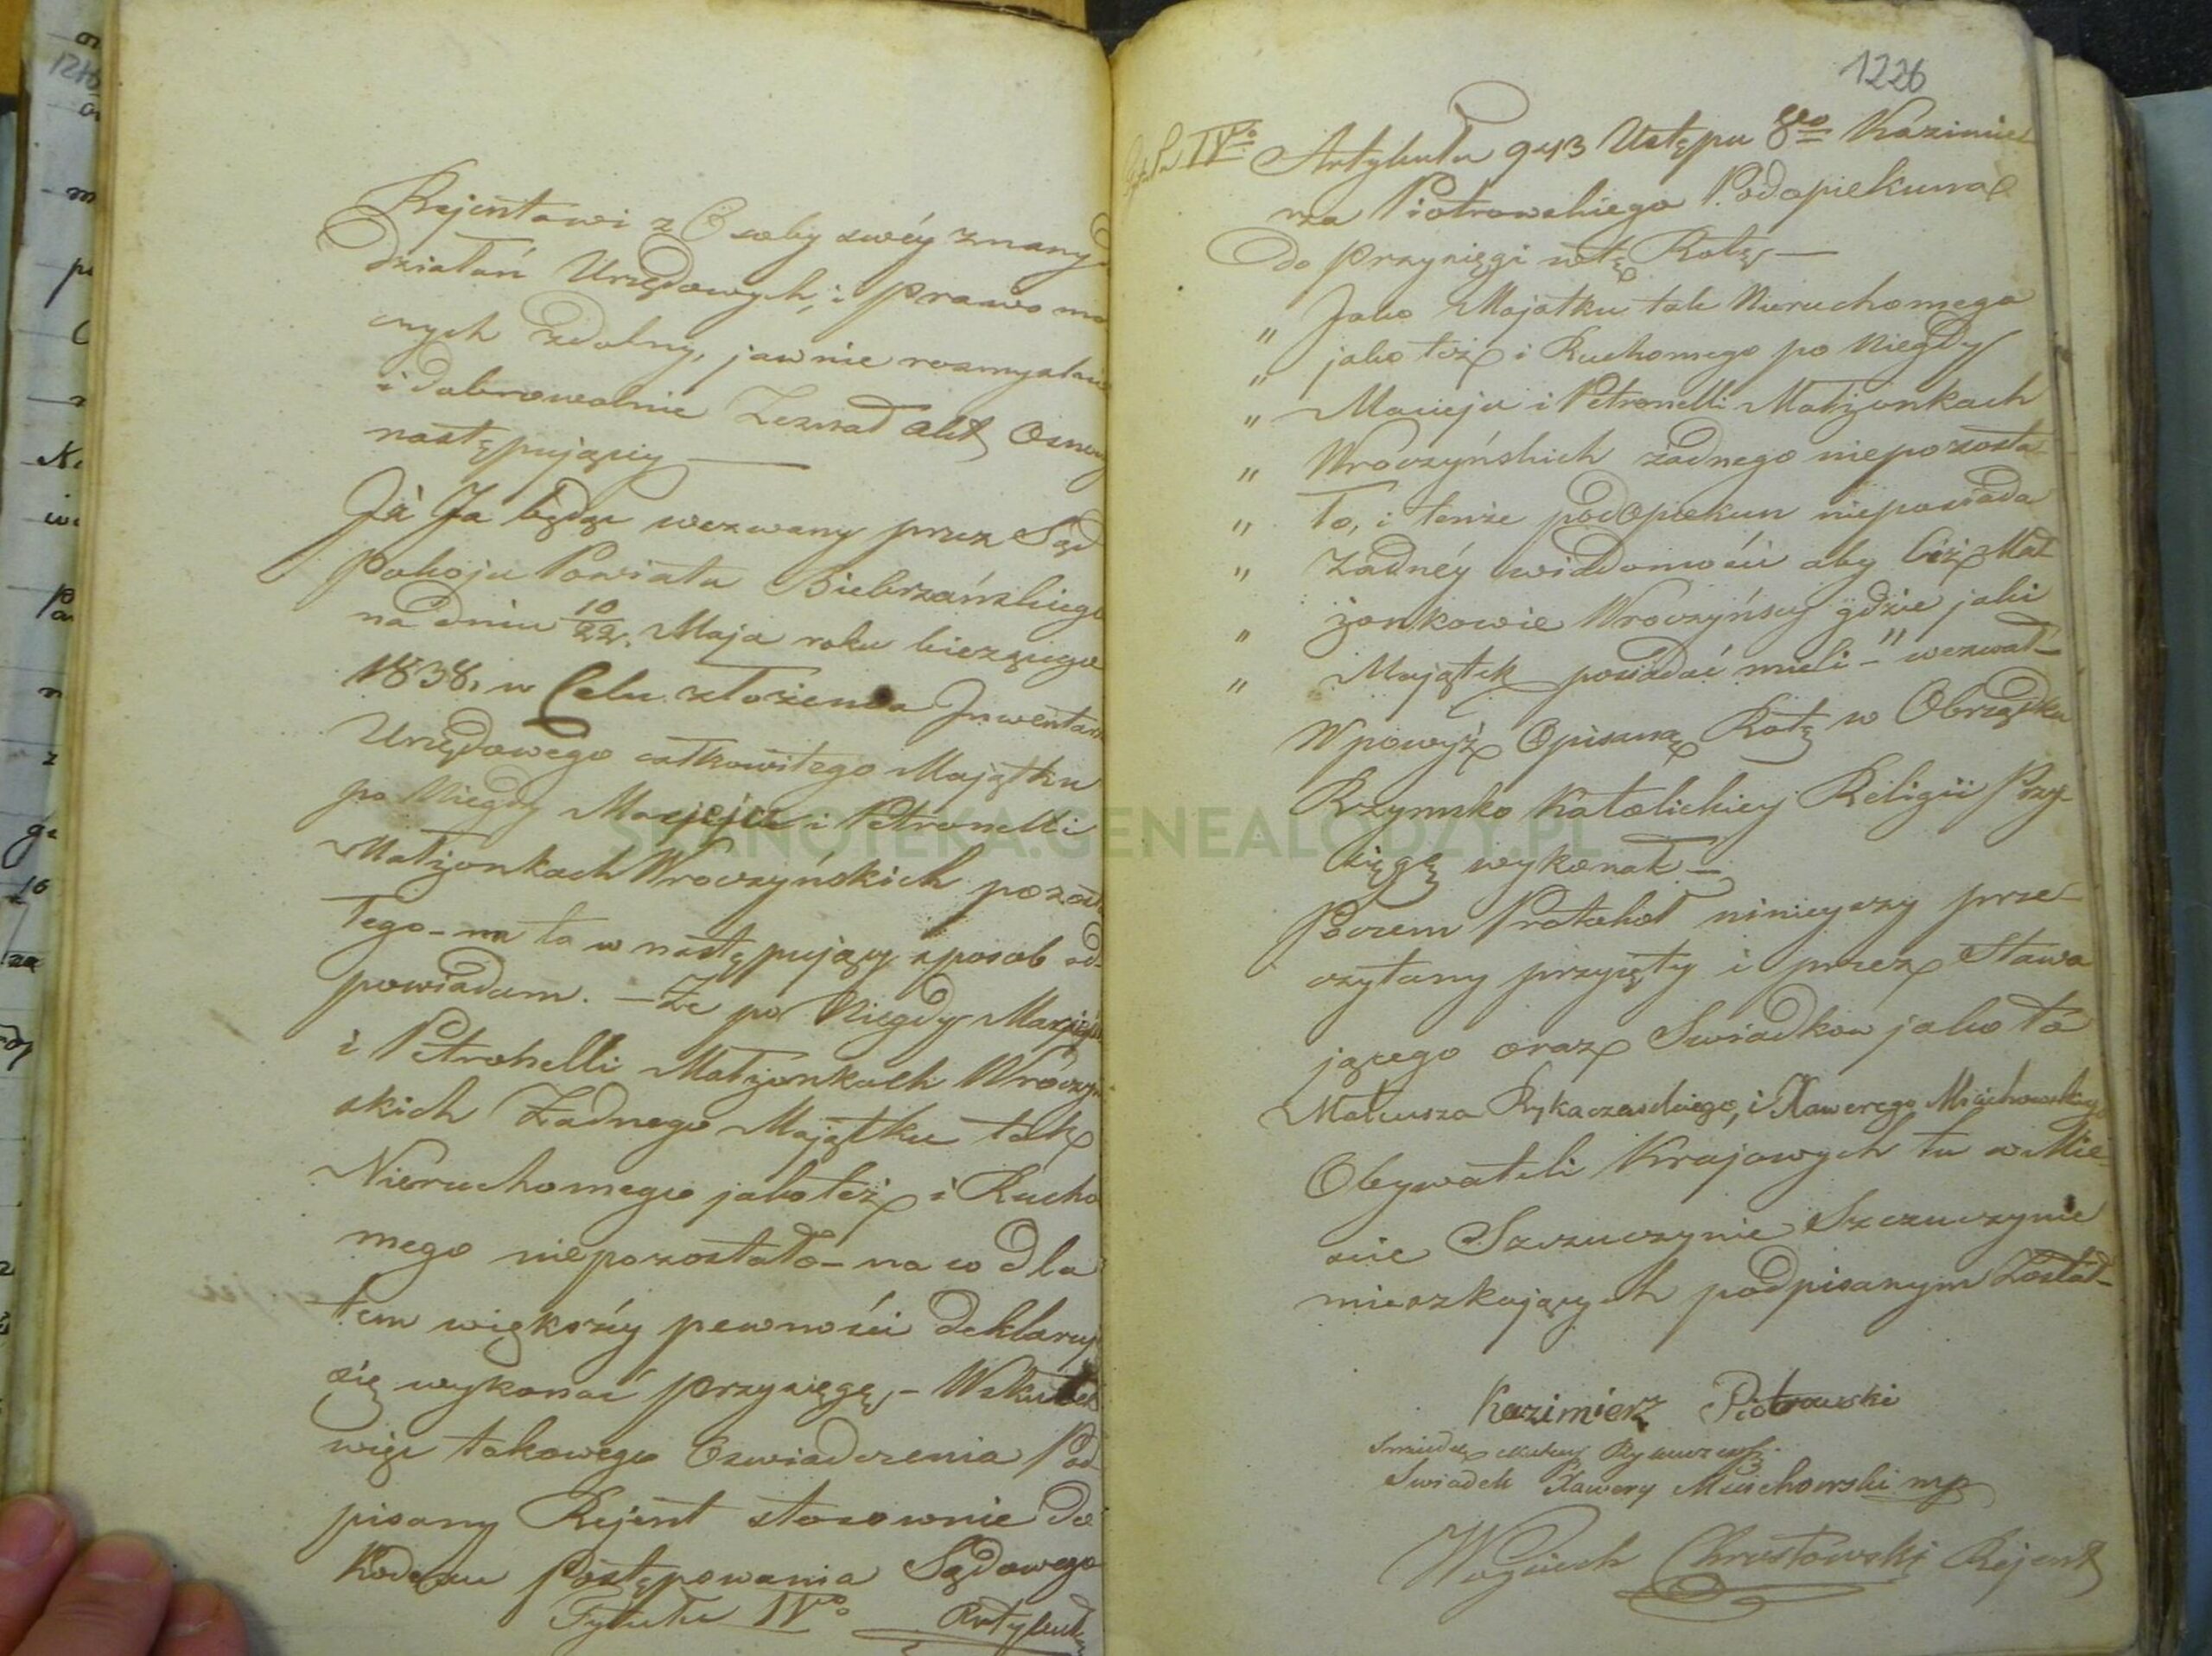 Rejentowi z Osoby swéy znany
działań Urzędowych, i prawo mo
cnych zdolny, jawnie rozmyślnie
i dobrowolnie Zeznał akt Osnowy
następującey —
Jà Ja będąc wezwany przez Sąd
Pokoju Powiatu Biebrzańskiego
na dniu 10/22. Maja roku bieżącego
1838, w Celu złożenia Inwentarza
Urzędowego całkowitego Majątku
po Niegdy Macieju i Petronelli
Małżonkach Wroczyńskich pozosta
łego – na to w następujący sposob od-
powiadam. – Że po Niegdy Macieju
i Petronelli Małżonkach Wroczyń
skich Żadnego Majątku tak
Nieruchomego jako też i Rucho
mego niepozostało – na co dla
tem większéy pewności deklaruję
się wykonać przysięgę, – Wskutek
więc takowego Oswiadczenia Pod
pisany Rejent stosownie do
Kodexu Postępowania Sądowego
Tytułu IVo Artykułu
1226
IVo Artykułu 943 Ustępu 8go Kazimie
rza Piotrowskiego Podopiekuna
do Przysięgi wtę Rotę —
" Jako Majątku tak Nieruchomego
" jako też i Ruchomego po Niegdy
" Macieju i Petronelli Małżonkach
" Wroczyńskich żadnego niepozosta
" ło, i tenże podopiekun nieposiada
" Żadnéy wiadomości aby Ciż Mał
" żonkowie Wroczyńscy gdzie jaki
" Majątek posiadać mieli – " wezwał –
W powyż Opisaną Rotę w Obrządku
Rzymsko Katolickiey Religii Przy
sięgę wykonał –
Poczem Protokoł ninieyszy prze-
czytany przyięty i przez Stawa
jącego oraz Swiadkow jako to
Mateusza Rykaczewskiego, i Xawerego Mścichowskiego
Obywateli Krajowych tu w Mie-
scie Szczuczynie Szczuczynie
mieszkających podpisanym Został –
Kazimierz Piotrowski
Swiadek Xawery Mścichowski mp
Woyciech Chrostowski Rejent